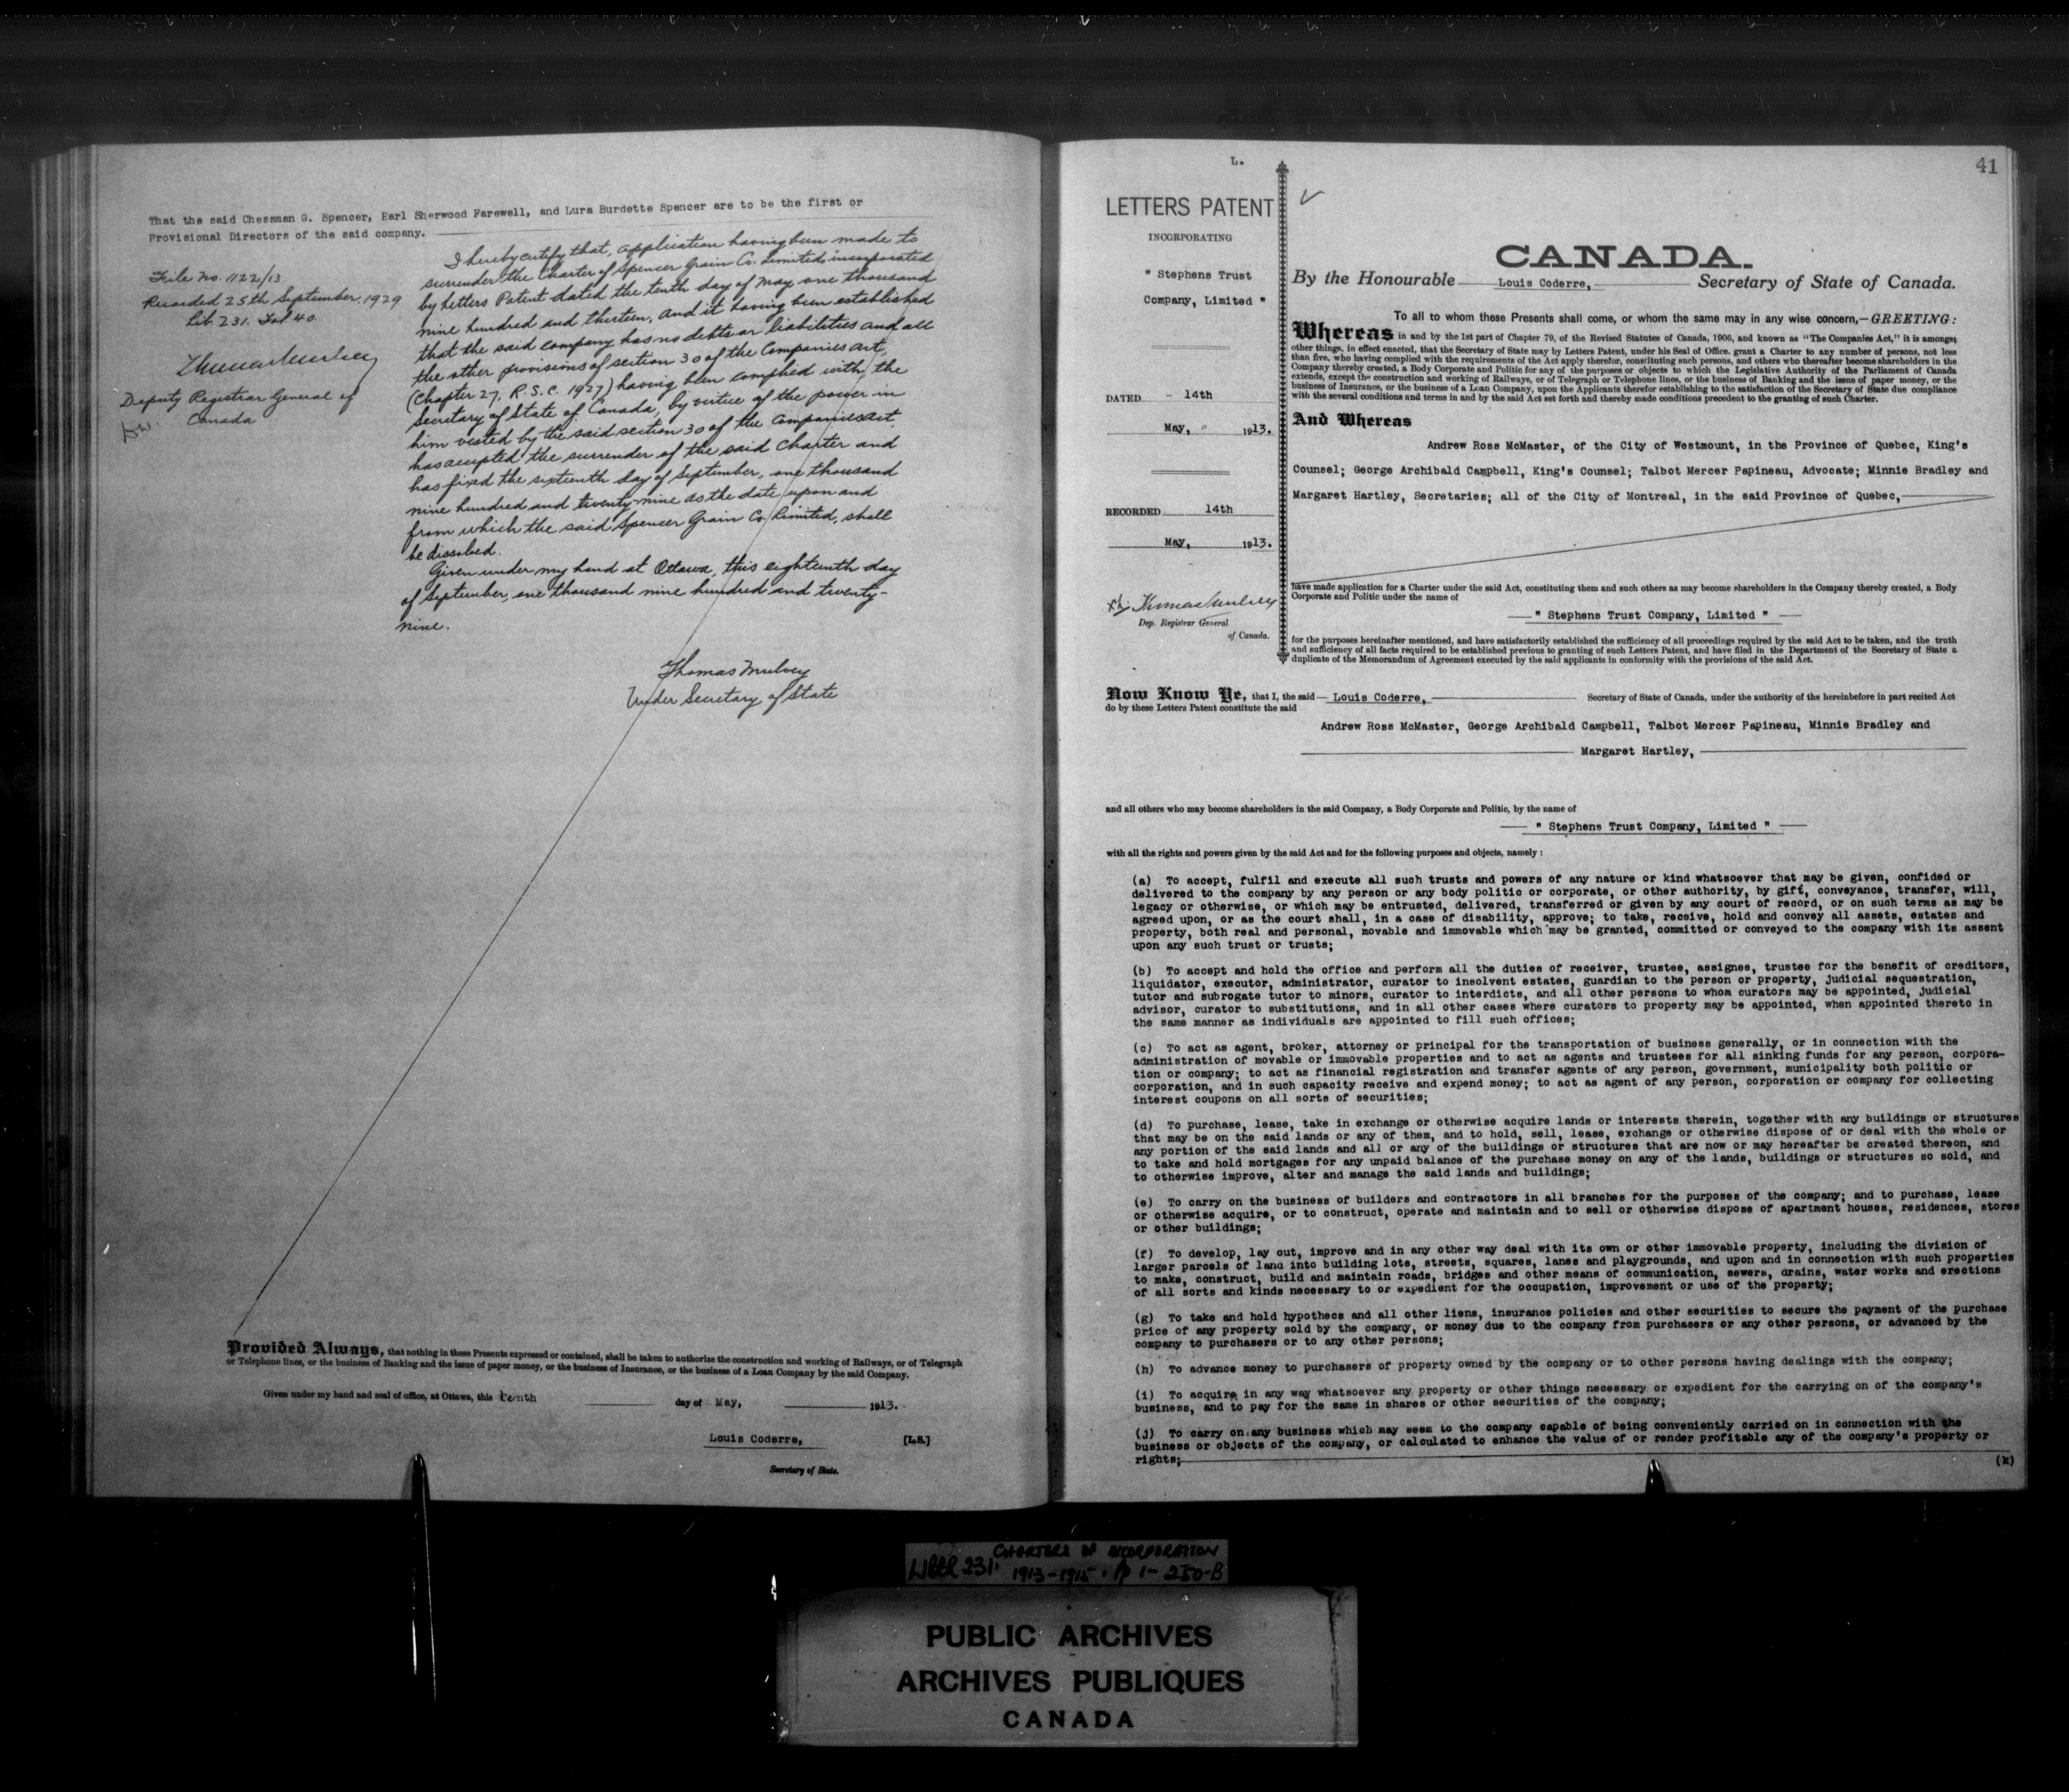 That the said Chessman G. Spencer, Earl Sherwood Farewell, and Lura Burdette Spencer are to be the first or
Provisional Directors of the said company.
File No. 1122/13
Recorded 25th September, 1929
Lib. 231. Fol 40.
Thomas Mulvey
Deputy Registrar General of
Canada
I hereby certify that, application having been made to
surrender the Charter of Spencer Grain Co. Limited, incorporated
by Letters Patent dated the tenth day of May, one thousand
nine hundred and thirteen, and it having been established
that the said company has no debts or liabilities and all
the other provisions of section 30 of the Companies Act,
(Chapter 27, R.S.C. 1927) having been complied with, the
Secretary of State of Canada, by virtue of the power in
him vested by the said section 30 of the Companies Act,
has accepted the surrender of the said Charter and
has fixed the sixteenth day of September, one thousand
nine hundred and twenty-nine as the date upon and
from which the said Spencer Grain Co. Limited, shall
be dissolved.
Given under my hand at Ottawa, this eighteenth day
of September, one thousand nine hundred and twenty-
nine.
Thomas Mulvey
Under Secretary of State
Provided Always, that nothing in these Presents expressed or contained, shall be taken to authorize the construction and working of Railways, or of Telegraph
or Telephone lines, or the business of Banking and the issue of paper money, or the business of Insurance, or the business of a Loan Company by the said Company.
Given under my hand and seal of office, at Ottawa, this tenth day of May, 1913.
Louis Coderre, [L.S.]
Secretary of State.
41
L.
LETTERS PATENT
INCORPORATING
" Stephens Trust
Company, Limited "
DATED - 14th
May, 1913.
RECORDED 14th
May, 1913.
Thomas Mulvey
Dep. Registrar General
of Canada.
CANADA.
By the Honourable Louis Coderre, Secretary of State of Canada.
To all to whom these Presents shall come, or whom the same may in any wise concern,—GREETING:
Whereas in and by the 1st part of Chapter 79, of the Revised Statutes of Canada, 1906, and known as "The Companies Act," it is amongst
other things, in effect enacted, that the Secretary of State may by Letters Patent, under his Seal of Office, grant a Charter to any number of persons, not less
than five, who having complied with the requirements of the Act apply therefor, constituting such persons, and others who thereafter become shareholders in the
Company thereby created, a Body Corporate and Politic for any of the purposes or objects to which the Legislative Authority of the Parliament of Canada
extends, except the construction and working of Railways, or of Telegraph or Telephone lines, or the business of Banking and the issue of paper money, or the
business of Insurance, or the business of a Loan Company, upon the Applicants therefor establishing to the satisfaction of the Secretary of State due compliance
with the several conditions and terms in and by the said Act set forth and thereby made conditions precedent to the granting of such Charter.
And Whereas
Andrew Ross McMaster, of the City of Westmount, in the Province of Quebec, King's
Counsel; George Archibald Campbell, King's Counsel; Talbot Mercer Papineau, Advocate; Minnie Bradley and
Margaret Hartley, Secretaries; all of the City of Montreal, in the said Province of Quebec,
have made application for a Charter under the said Act, constituting them and such others as may become shareholders in the Company thereby created, a Body
Corporate and Politic under the name of
" Stephens Trust Company, Limited "
for the purposes hereinafter mentioned, and have satisfactorily established the sufficiency of all proceedings required by the said Act to be taken, and the truth
and sufficiency of all facts required to be established previous to granting of such Letters Patent, and have filed in the Department of the Secretary of State a
duplicate of the Memorandum of Agreement executed by the said applicants in conformity with the provisions of the said Act.
Now Know Ye, that I, the said Louis Coderre, Secretary of State of Canada, under the authority of the hereinbefore in part recited Act
do by these Letters Patent constitute the said
Andrew Ross McMaster, George Archibald Campbell, Talbot Mercer Papineau, Minnie Bradley and
Margaret Hartley,
and all others who may become shareholders in the said Company, a Body Corporate and Politic, by the name of
" Stephens Trust Company, Limited "
with all the rights and powers given by the said Act and for the following purposes and objects, namely :
(a) To accept, fulfil and execute all such trusts and powers of any nature or kind whatsoever that may be given, confided or
delivered to the company by any person or any body politic or corporate, or other authority, by gift, conveyance, transfer, will,
legacy or otherwise, or which may be entrusted, delivered, transferred or given by any court of record, or on such terms as may be
agreed upon, or as the court shall, in a case of disability, approve; to take, receive, hold and convey all assets, estates and
property, both real and personal, movable and immovable which may be granted, committed or conveyed to the company with its assent
upon any such trust or trusts;
(b) To accept and hold the office and perform all the duties of receiver, trustee, assignee, trustee for the benefit of creditors,
liquidator, executor, administrator, curator to insolvent estates, guardian to the person or property, judicial sequestration,
tutor and subrogate tutor to minors, curator to interdicts, and all other persons to whom curators may be appointed, judicial
advisor, curator to substitutions, and in all other cases where curators to property may be appointed, when appointed thereto in
the same manner as individuals are appointed to fill such offices;
(c) To act as agent, broker, attorney or principal for the transportation of business generally, or in connection with the
administration of movable or immovable properties and to act as agents and trustees for all sinking funds for any person, corpora-
tion or company; to act as financial registration and transfer agents of any person, government, municipality both politic or
corporation, and in such capacity receive and expend money; to act as agent of any person, corporation or company for collecting
interest coupons on all sorts of securities;
(d) To purchase, lease, take in exchange or otherwise acquire lands or interests therein, together with any buildings or structures
that may be on the said lands or any of them, and to hold, sell, lease, exchange or otherwise dispose of or deal with the whole or
any portion of the said lands and all or any of the buildings or structures that are now or may hereafter be created thereon, and
to take and hold mortgages for any unpaid balance of the purchase money on any of the lands, buildings or structures so sold, and
to otherwise improve, alter and manage the said lands and buildings;
(e) To carry on the business of builders and contractors in all branches for the purposes of the company; and to purchase, lease
or otherwise acquire, or to construct, operate and maintain and to sell or otherwise dispose of apartment houses, residences, stores
or other buildings;
(f) To develop, lay out, improve and in any other way deal with its own or other immovable property, including the division of
larger parcels of land into building lots, streets, squares, lanes and playgrounds, and upon and in connection with such properties
to make, construct, build and maintain roads, bridges and other means of communication, sewers, drains, water works and erections
of all sorts and kinds necessary to or expedient for the occupation, improvement or use of the property;
(g) To take and hold hypothecs and all other liens, insurance policies and other securities to secure the payment of the purchase
price of any property sold by the company, or money due to the company from purchasers or any other persons, or advanced by the
company to purchasers or to any other persons;
(h) To advance money to purchasers of property owned by the company or to other persons having dealings with the company;
(i) To acquire in any way whatsoever any property or other things necessary or expedient for the carrying on of the company's
business, and to pay for the same in shares or other securities of the company;
(j) To carry on any business which may seem to the company capable of being conveniently carried on in connection with the
business or objects of the company, or calculated to enhance the value of or render profitable any of the company's property or
rights;
(k)
CHARTERS OF INCORPORATION
LIBER 231: 1913-1915. pp 1-250-B
PUBLIC ARCHIVES
ARCHIVES PUBLIQUES
CANADA